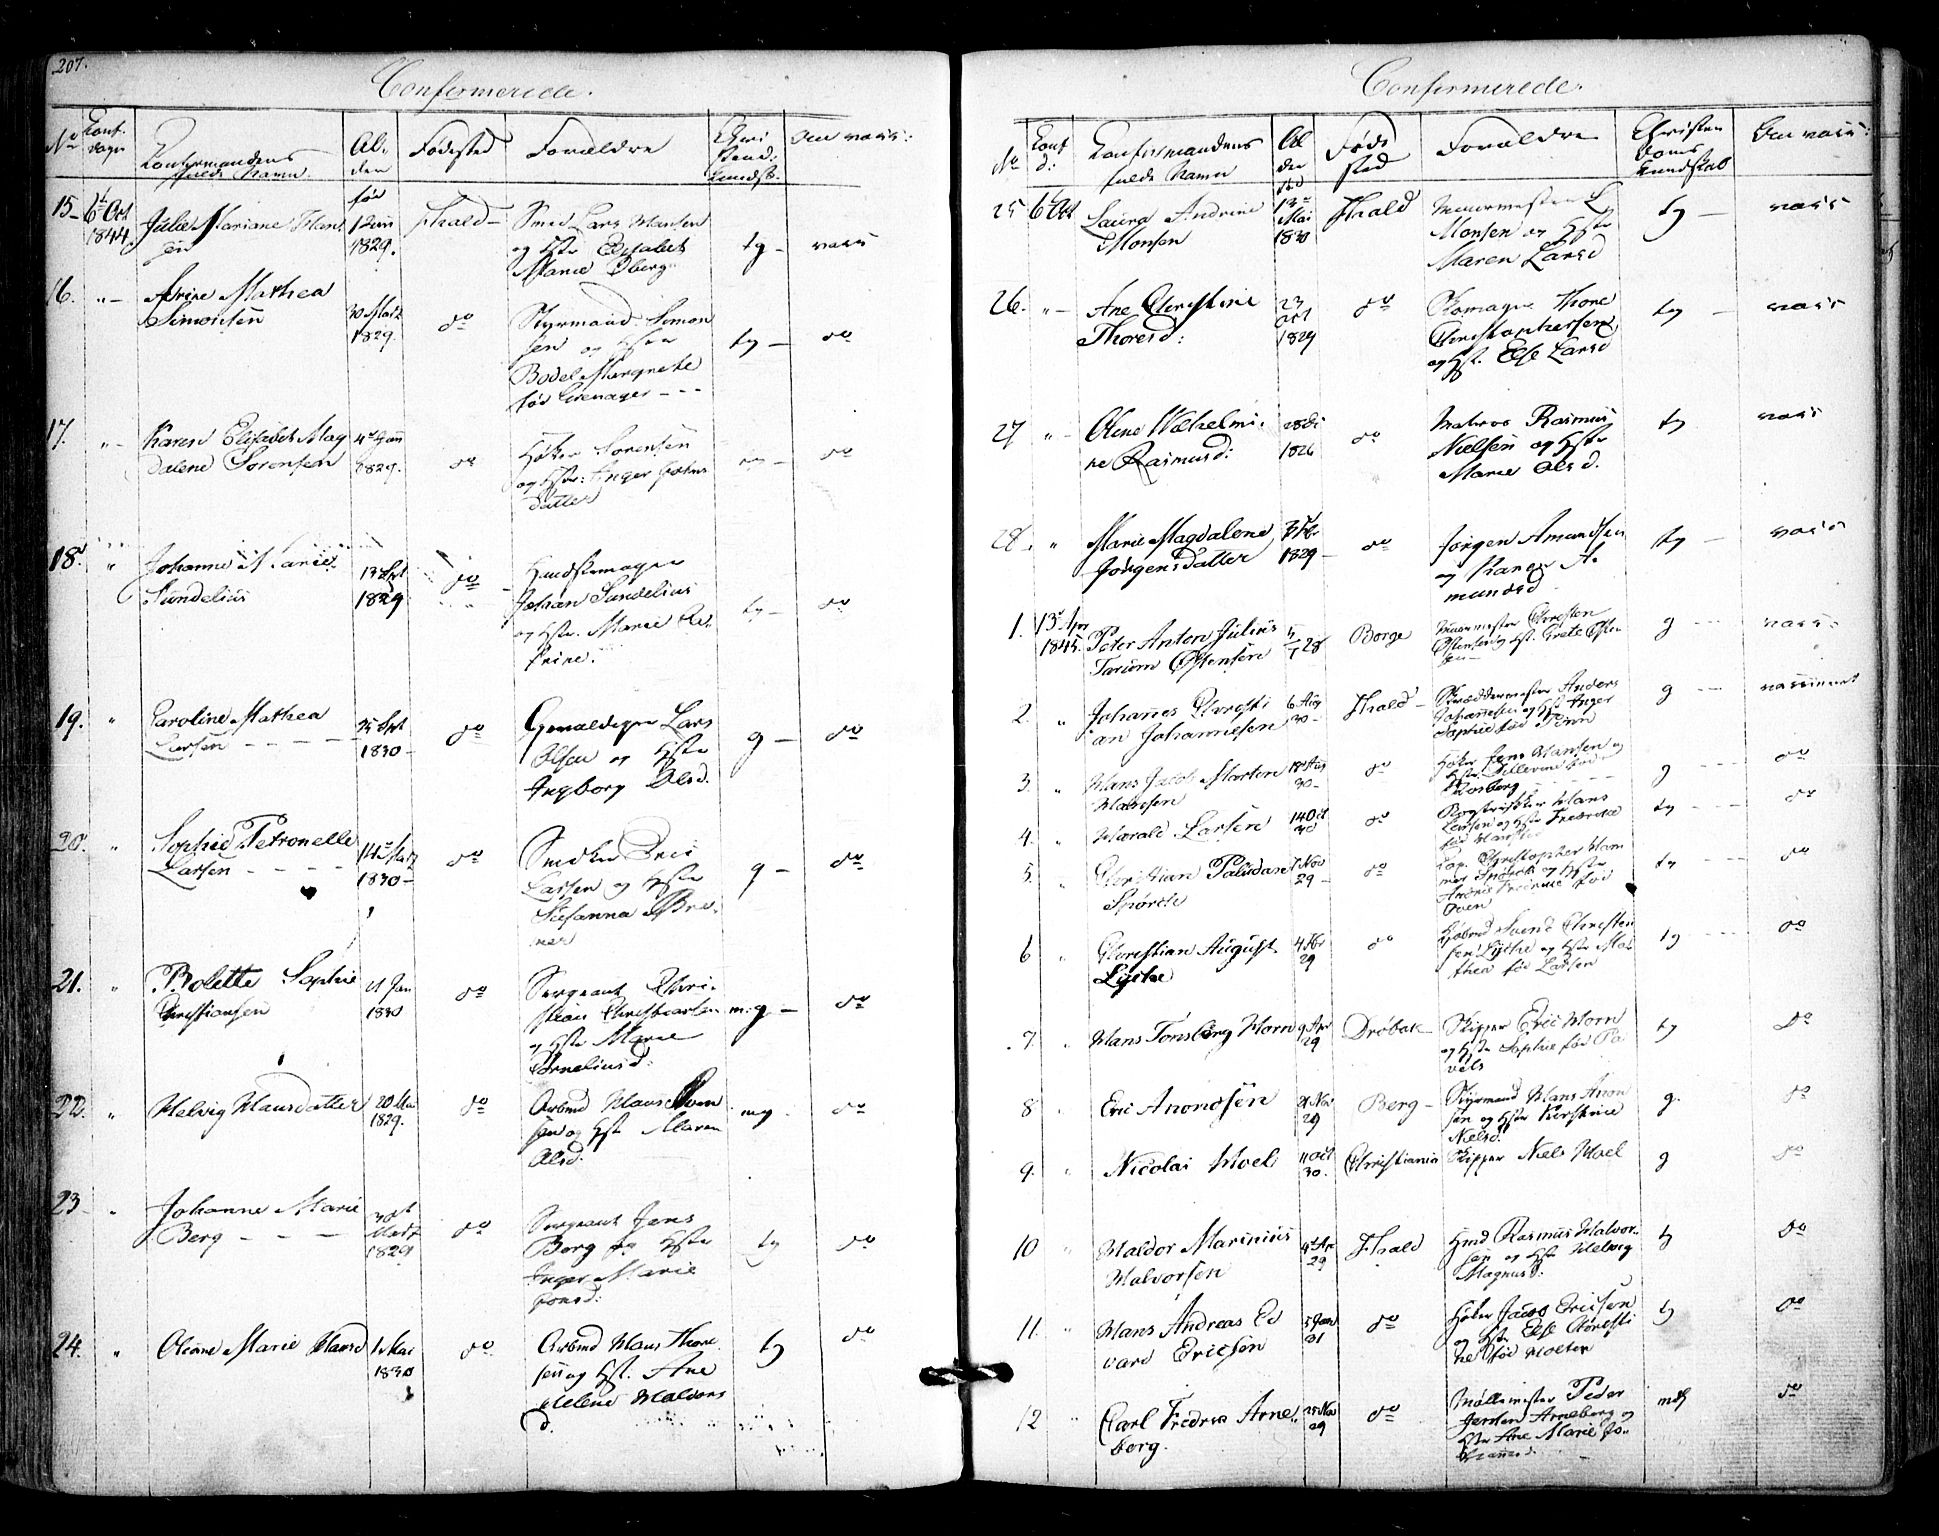 207.
Confirmerede.
No
Conf.
dagen
Konfirmandens
fulde Navn.
Al-
der
Fødested
Forældre
Chri
stend:
Kundsk.
Om vacc:
15
6t Oct
1844
Julie Mariane Hans
en
før
1 Juni
1829.
Fhald
Smed Lars Hansen
og Hstr Elisabet
Marie Oberg
tg
vacc
16.
"
Simonsen
30 Marts
1829.
do
Styrmand Simon
sen og Hstr
Bodel Margrete
tg
do
17.
"
Karen Elisabet Mag
dalene Sørensen
4de Jan
1829.
do
Høker Sørensen
og Hstr: Inger
datter
do
18.
"
Johanne Marie
Sundelius
13 Sept
1829
do
Handskemager
Johan Sundelius
og Hstr. Marie
trine.
tg
do
19.
"
Caroline Mathea
Larsen
25 Sept
1830
do
Gevaldiger Lars
Olsen og Hstr
Ingborg Olsd.
g
do
20
"
Sophie Petronelle
Larsen
14de Marts
1830
do
Larsen og Hstr
Susanna
g
do
21.
"
Bolette Sophie
Christiansen
Jan
1830
do
Sergeant Chri-
stian Christiansen
og Hstr Marie
Corneliusd:
m:g
do
22.
"
Helvig Hansdatter
20 Mai
1829.
do
Arbmd Hans Even
sen og Hstr Maren
Olsd:
mg.
do
23
"
Johanne Marie
Berg
Marts
1829
do
Sergeant Jens
Berg og Hstr
Inger Marie
tg
do
24.
"
Oleane Marie Hansd
1 Mai
1830
do
Arbmd Hans Thore
sen og Hst. Ane
Helene Halvors
d.
tg
do
Confirmerede.
No
Conf
d:
Konfirmandens
fulde Navn
Al
der
Føde
sted
Forældre
Christen
doms
kundskab
Om vacc:
25
6 Oct
Laura Andrine
Monsen
13de
Mai
1830
Fhald
Muurmester L
Monsen og Hstr
Maren Larsd
tg
vacc
26.
"
Ane Christine
Thoresd:
23
Oct
1829
do
Skomager Thore
Christophersen
og Hst. Else Larsd
tg
vacc
27
"
Olene Wilhelmi-
ne Rasmusd:
1826
do
Matros Rasmus
Nielsen og Hstr
Marie Olsd.
tg
vacc
28.
"
Marie Magdalene
Jørgensdatter
1829
do
Jørgen Amundsen
og Karen A-
mundsd
tg
vacc
1.
13de Apr
1845.
Peter Anton Julius
Østensen
28
Borge
Muurmester Christen
Østensen og Hst. Grete Østen
g
vacc
2.
"
Johannes Christi
an Johannesen
6 Aug
30
Fhald
Skræddermester Anders
Johannesen og Hst Inger
Sophie fød
g
vaccineret
3
"
Hans Jacob Marten
Hansen
18 Aug
30
do
Høker Jens Hansen og
Rosberg
g
do
4.
"
Harald Larsen
14 Oct
30
do
Hans
Larsen og Hstr Fredrikke
tg
do
5.
"
Christian Paludan
Spørck
Nov
29
do
Cap. Christopher Ham
mer Spørck og Hstr
fød
tg
do
6
"
Christian August
Lycke
4
29
do
Svend Christen
sen Lycke og Hstr Ma-
thea fød Larsen
tg
do
7.
"
Hans Tønsberg Horn
9 Apr
29
Drøbak
Skipper Eric Horn
og Hstr Sophie fød Pa
vels
tg
do
8
"
Eric Anonsen
21 Nov
29
Berg
Styrmand Hans Anon
sen og Hstr Kirstine
Nielsd:
g.
do
9.
"
Nicolai Hoel
11 Oct
30.
Christiania
Skipper Niels Hoel
g
do
10
"
Haldor Marinius
Halvorsen
4de Apr
29
Fhald
Hmd Rasmus Halvor-
sen og Hstr Helvig
Magnusd:
tg
do
11.
"
Hans Andreas Ed
vard Ericsen
5 Jan
31
do
Høker Jacob Ericsen
og Hstr Else Christi
ne fød Holter
tg
do
12
"
Carl Fredrik Arne
berg.
25 Nov
29
do
Møllemester Peder
Jensen Arneberg og
Hstr Ane Marie Jo-
hannesd.
mtg
do